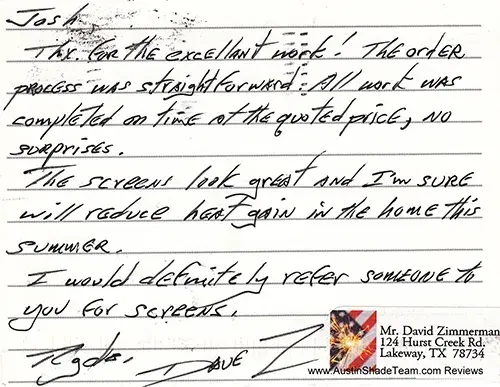 Josh,
Thx. for the excellant work! The order
process was straightforward. All work was
completed on time at the quoted price, no
surprises.
The screens look great and I'm sure
will reduce heat gain in the home this
summer.
I would definitely refer someone to
you for screens.
Rgds. Dave Z
Mr. David Zimmerman
124 Hurst Creek Rd.
Lakeway, TX 78734
www.AustinShadeTeam.com Reviews